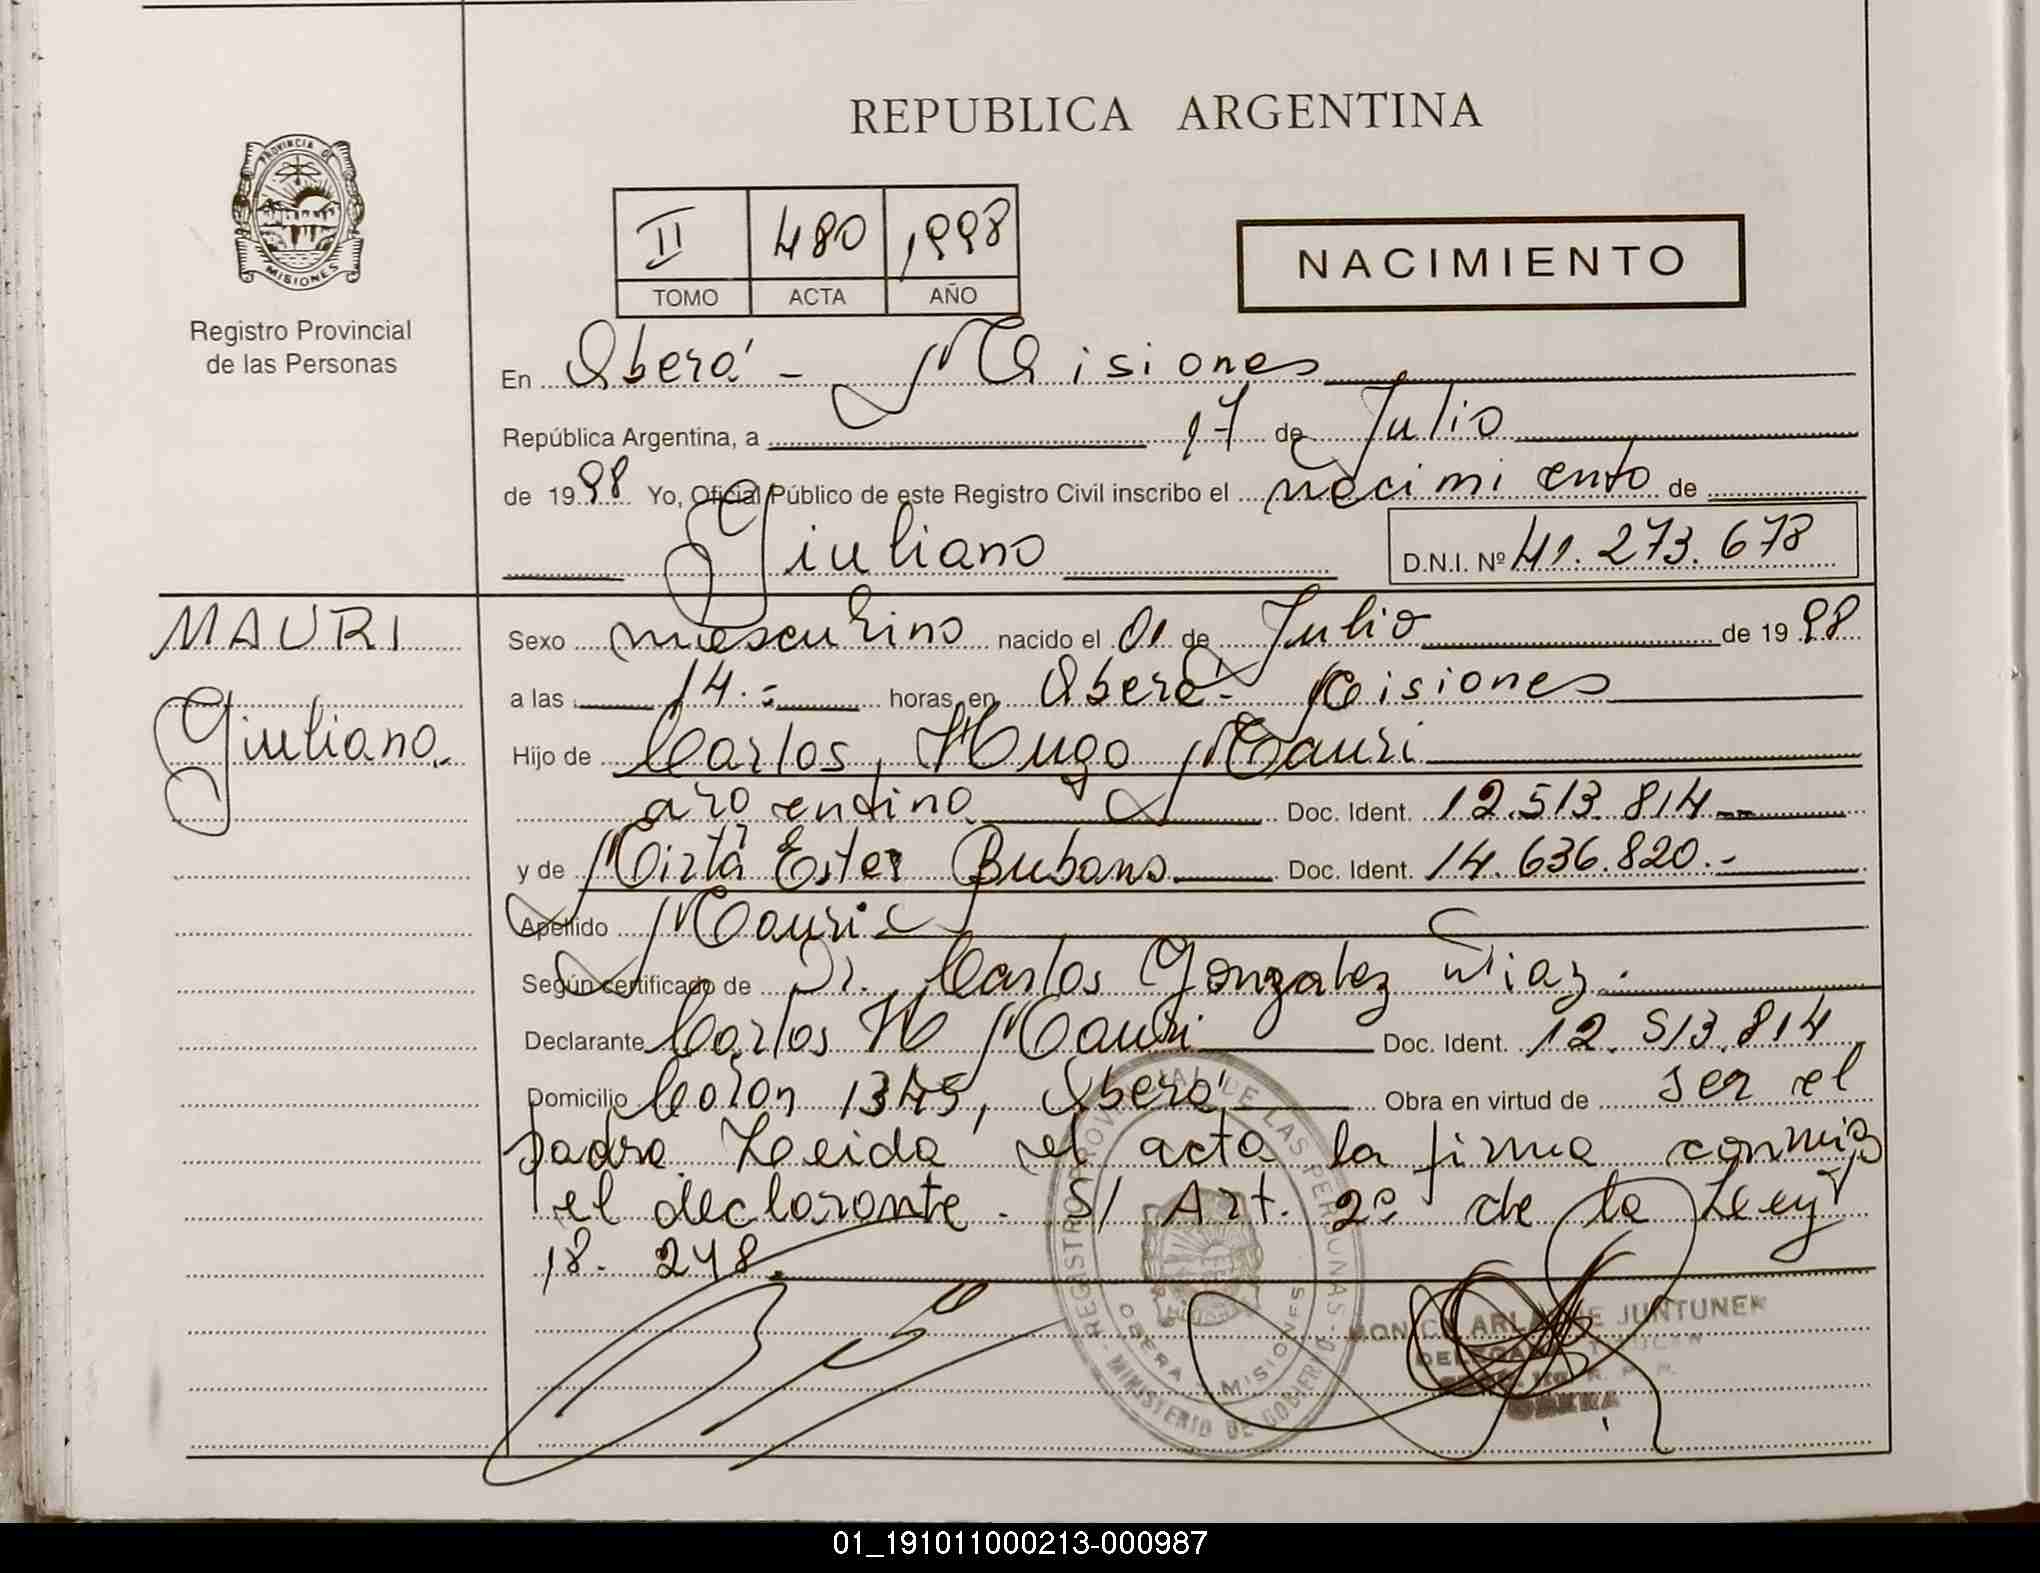 REPUBLICA ARGENTINA
PROVINCIA DE
MISIONES
Registro Provincial
de las Personas
II 480 1998
TOMO ACTA AÑO
NACIMIENTO
En Oberá - Misiones
República Argentina, a 17 de Julio
de 1998 Yo, Oficial Público de este Registro Civil inscribo el nacimiento de
Giuliano D.N.I. Nº 41.273.678
MAURI
Giuliano.-
Sexo masculino nacido el 01 de Julio de 1998
a las 14.= horas en Oberá - Misiones
Hijo de Carlos Hugo Mauri
argentino Doc. Ident. 12.513.814
y de Mirta Ester Doc. Ident. 14.636.820.-
Apellido Mauri
Según certificado de Dr. Carlos Gonzalez Diaz.
Declarante Carlos H Mauri Doc. Ident. 12.513.814
Domicilio Colon 1345, Oberá Obra en virtud de ser el
padre. Leida el acta la firma conmigo
el declarante. S/ Art. 2º de la Ley
18.248.
REGISTRO PROVINCIAL DE LAS PERSONAS
- MINISTERIO DE GOBIERNO -
OBERA MISIONES
DE JUNTUNEN
OBERA
01_191011000213-000987